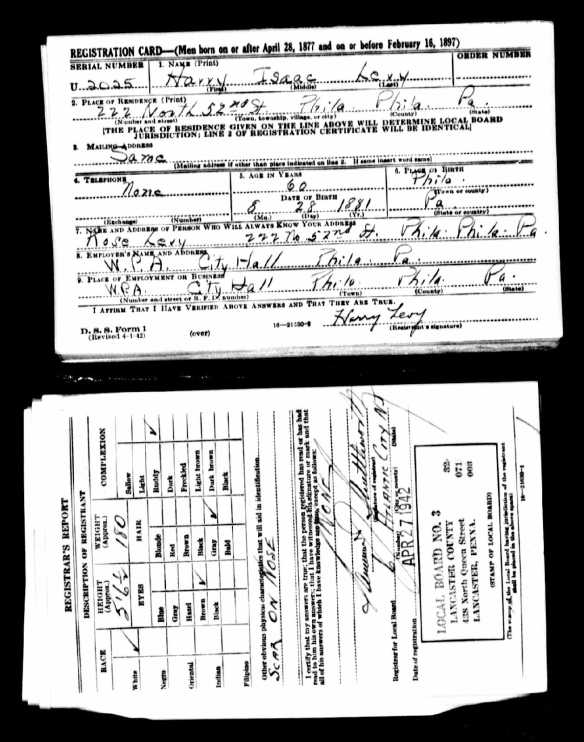 REGISTRATION CARD—(Men born on or after April 28, 1877 and on or before February 16, 1897)
SERIAL NUMBER 1. NAME (Print) ORDER NUMBER
U 2025 Harry Isaac Levy
(First) (Middle) (Last)
2. PLACE OF RESIDENCE (Print)
222 North 52nd St Phila Phila Pa.
(Number and street) (Town, township, village, or city) (County) (State)
[THE PLACE OF RESIDENCE GIVEN ON THE LINE ABOVE WILL DETERMINE LOCAL BOARD
JURISDICTION; LINE 2 OF REGISTRATION CERTIFICATE WILL BE IDENTICAL]
3. MAILING ADDRESS
Same
(Mailing address if other than place indicated on line 2. If same insert word same)
4. TELEPHONE 5. AGE IN YEARS 6. PLACE OF BIRTH
None 60 Phila.
DATE OF BIRTH (Town or county)
8 28 1881 Pa
(Exchange) (Number) (Mo.) (Day) (Yr.) (State or country)
7. NAME AND ADDRESS OF PERSON WHO WILL ALWAYS KNOW YOUR ADDRESS
Rose Levy 222 No 52nd St. Phila. Phila. Pa.
8. EMPLOYER'S NAME AND ADDRESS
W.P.A. City Hall Phila Pa.
9. PLACE OF EMPLOYMENT OR BUSINESS
W.P.A. City Hall Phila Phila Pa.
(Number and street or R. F. D. number) (Town) (County) (State)
I AFFIRM THAT I HAVE VERIFIED ABOVE ANSWERS AND THAT THEY ARE TRUE.
Harry Levy
D. S. S. Form 1 16—21630-2 (Registrant's signature)
(Revised 4-1-42) (over)
REGISTRAR'S REPORT
DESCRIPTION OF REGISTRANT
RACE HEIGHT (Approx.) WEIGHT (Approx.) COMPLEXION
5'6½ 180
EYES HAIR
White ✓
Negro
Oriental
Indian
Filipino
Blue
Gray
Hazel
Brown ✓
Black
Blonde
Red
Brown
Black
Gray ✓
Bald
Sallow
Light
Ruddy ✓
Dark
Freckled
Light brown
Dark brown
Black
Other obvious physical characteristics that will aid in identification
SCAR ON NOSE
I certify that my answers are true; that the person registered has read or has had
read to him his own answers; that I have witnessed his signature or mark and that
all of his answers of which I have knowledge are true, except as follows:
NONE
(Signature of registrar)
Registrar for Local Board
Atlantic City NJ
Date of registration APR 27 1942
LOCAL BOARD NO. 3 32-
LANCASTER COUNTY 071
428 North Queen Street 003
LANCASTER, PENNA.
(STAMP OF LOCAL BOARD)
(The stamp of the Local Board having jurisdiction of the registrant
shall be placed in the above space)